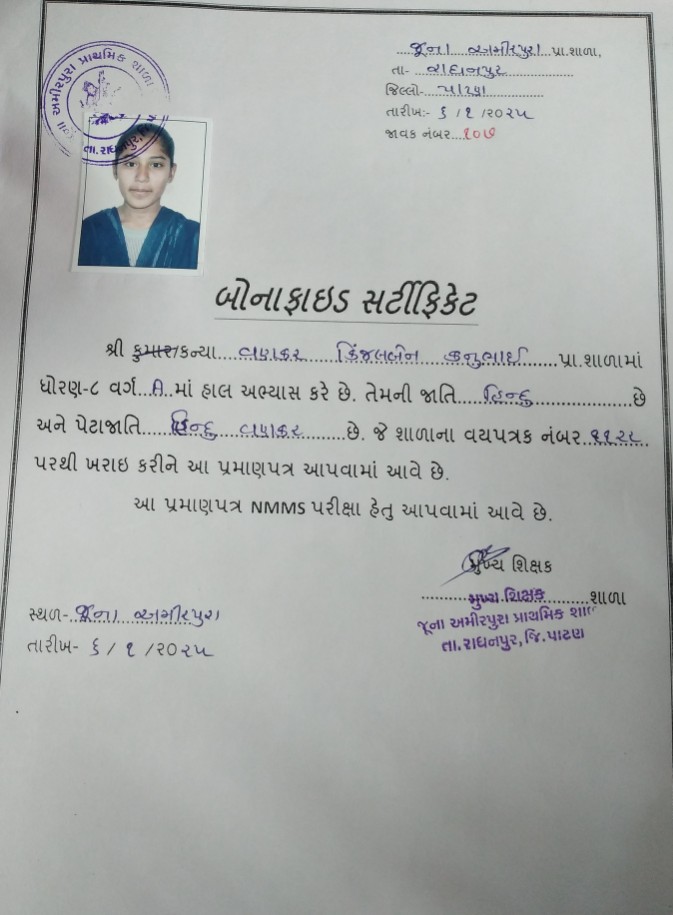 જૂના અમીરપુરા પ્રાથમિક શાળા
તા. રાધનપુર, જિ.
જૂના અમીરપુરા પ્રા.શાળા,
તા- રાધનપુર
જિલ્લો- પાટણ
તારીખ:- ૬ / ૧ / ૨૦૨૫
જાવક નંબર....૧૦૭
બોનાફાઇડ સર્ટીફિકેટ
શ્રી કુમાર/કન્યા.....વણકર કિંજલબેન કનુભાઈ......પ્રા.શાળામાં
ધોરણ-૮ વર્ગ..A..માં હાલ અભ્યાસ કરે છે. તેમની જાતિ.....હિન્દુ..................છે
અને પેટાજાતિ.....હિન્દુ વણકર........છે. જે શાળાના વયપત્રક નંબર..૧૧૨૮..
પરથી ખરાઇ કરીને આ પ્રમાણપત્ર આપવામાં આવે છે.
આ પ્રમાણપત્ર NMMS પરીક્ષા હેતુ આપવામાં આવે છે.
મુખ્ય શિક્ષક
.........મુખ્ય શિક્ષક.........શાળા
જૂના અમીરપુરા પ્રાથમિક શાળા
તા.રાધનપુર, જિ.પાટણ
સ્થળ- જૂના અમીરપુરા
તારીખ- ૬ / ૧ / ૨૦૨૫